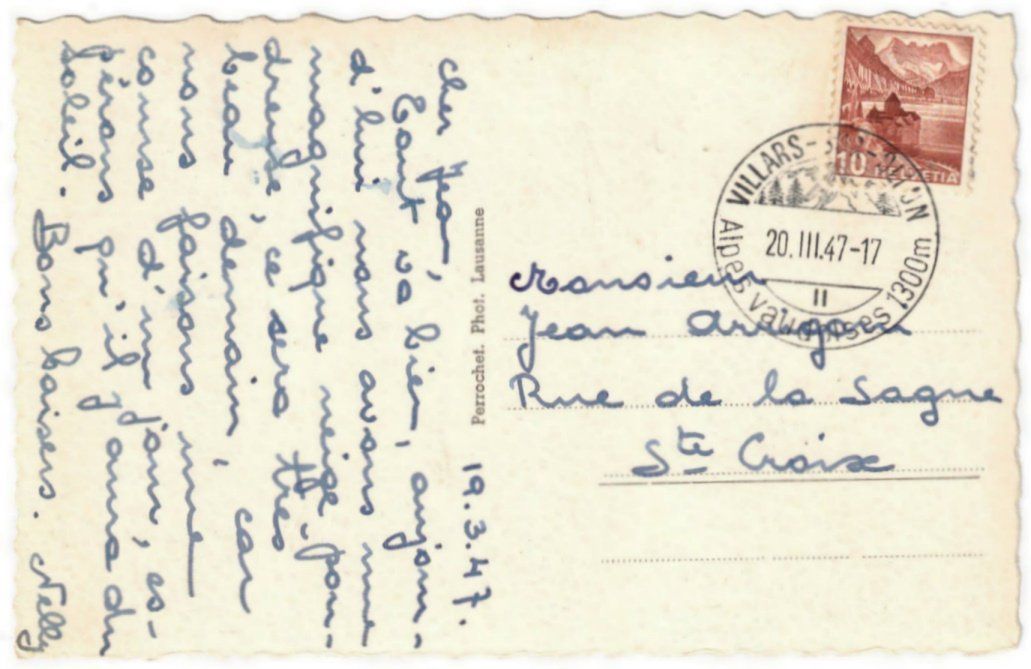 19.3.47.
cher Jean,
Tout va bien, aujour-
d'hui nous avons une
magnifique neige pou-
dreuse, ce sera très
beau, demain, car
nous faisons une
course d'un jour, es-
pérons qu'il y aura du
soleil. Bons baisers. Nelly
Perrochet. Phot. Lausanne
10 HELVETIA
VILLARS-SUR-OLLON
20.III.47-17
II
Alpes vaudoises 1300m
Monsieur
Jean
Rue de la Sagne
Ste Croix